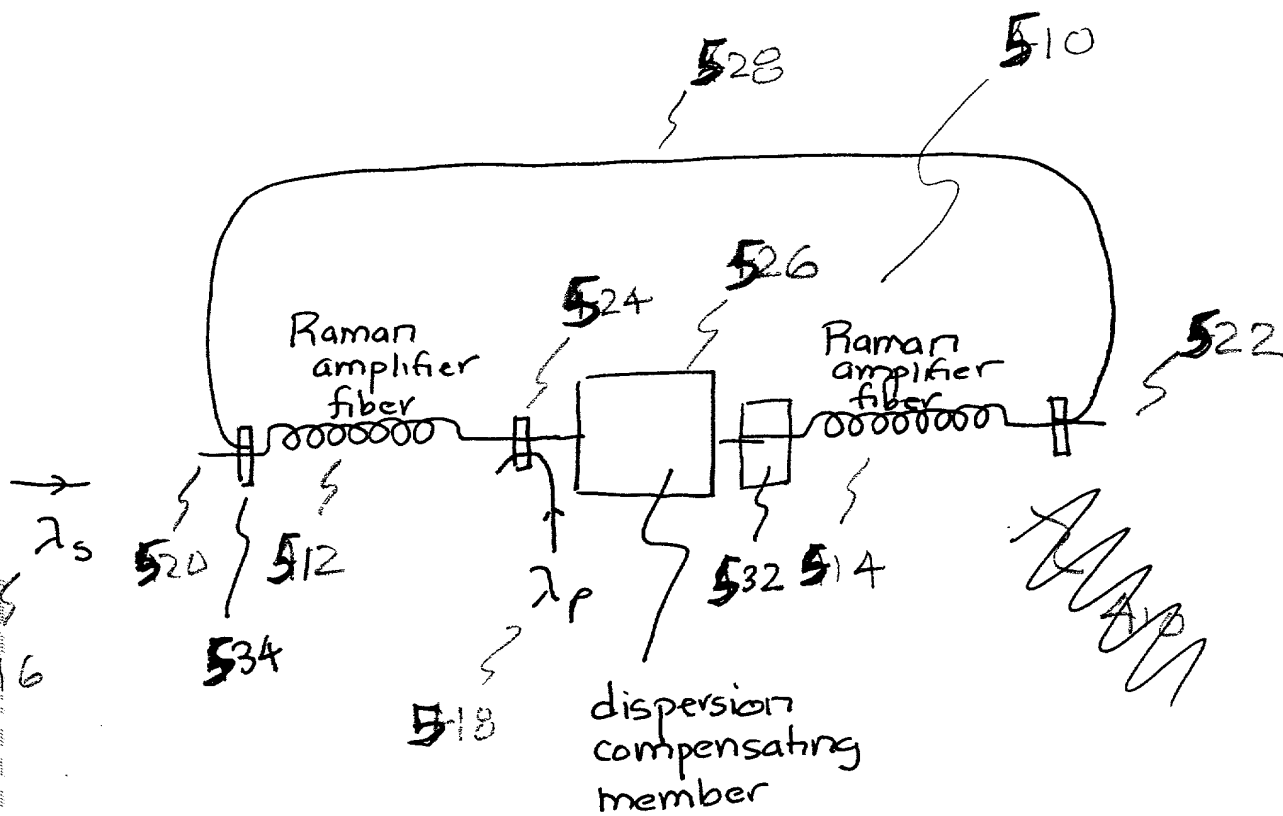 528
510
526
524
Raman
amplifier
fiber
Raman
amplifier
fiber
522
λs
520
512
λp
532
514
534
6
518
dispersion
compensating
member